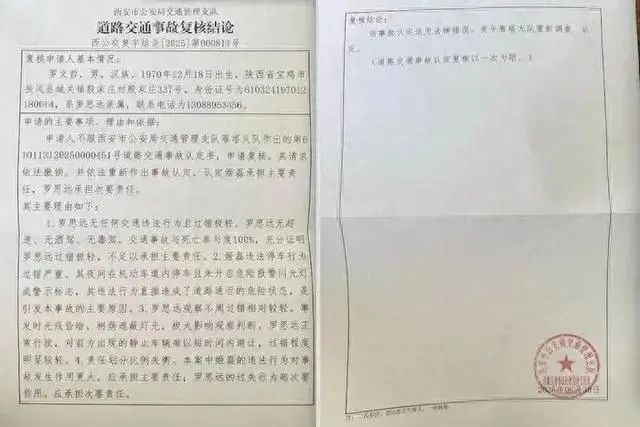 西安市公安局交通管理支队
道路交通事故复核结论
西公交复字结论[2025]第000811号
复核申请人基本情况:
罗文哲,男,汉族,1970年12月18日出生,陕西省宝鸡市
扶风县城关镇殷家庄村殷家庄337号,身份证号为610324197012
180014,系罗思远亲属,联系电话为13088953456。
申请的主要事项、理由和依据:
申请人不服西安市公安局交通管理支队雁塔大队作出的第6
101131202500000451号道路交通事故认定书,申请复核。其请求
依法撤销,并依法重新作出事故认定,认定姬磊承担主要责
任,罗思远承担次要责任。
其主要理由如下:
1.罗思远无任何交通违法行为且过错极轻。罗思远无超
速、无酒驾、无毒驾,交通事故与死亡参与度100%,充分证明
罗思远过错极轻,不足以承担主要责任。2.姬磊违法停车行为
过错严重。其夜间在机动车道内停车且未开启危险报警闪光灯
或警示标志,其违法行为直接造成了道路通行的危险状态,是
引发本事故的主要原因。3.罗思远观察不周过错相对较轻。事
发时光线昏暗,树荫遮蔽灯光,极大影响观察判断。罗思远正
常行驶,对前方出现的静止车辆难以短时间内避让,过错程度
明显较轻。4.责任划分比例失衡。本案中姬磊的违法行为对事
故发生作用更大,应承担主要责任;罗思远的过失行为起次要作
用,应承担次要责任。
复核结论:
该事故认定适用法律错误,责令雁塔大队重新调查、认
定。
(道路交通事故认定复核以一次为限。)